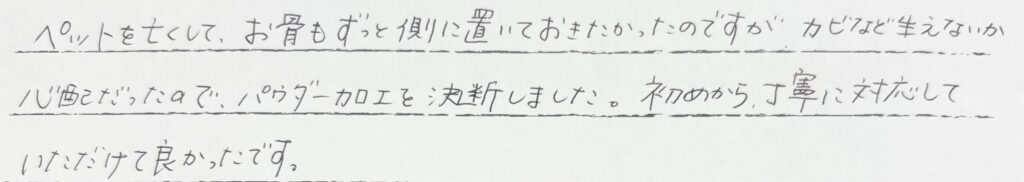 ペットを亡くして、お骨もずっと側に置いておきたかったのですが カビなど生えないか
心配だったので、パウダー加工を決断しました。初めから、丁寧に対応して
いただけて良かったです。